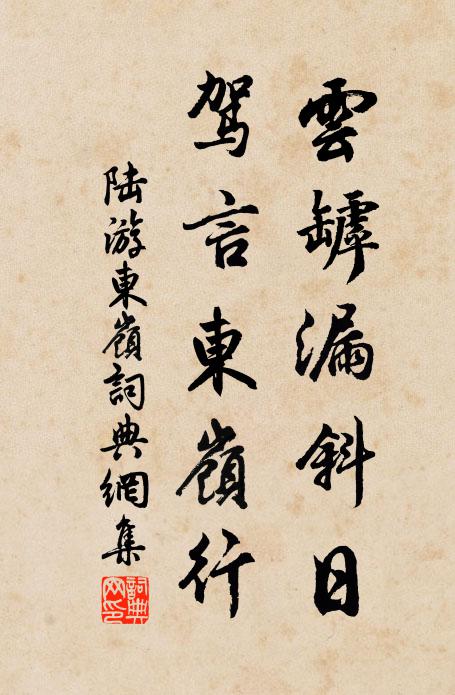 雲罅漏斜日
駕言東嶺行
陸游東嶺詞典網集
詞典網印